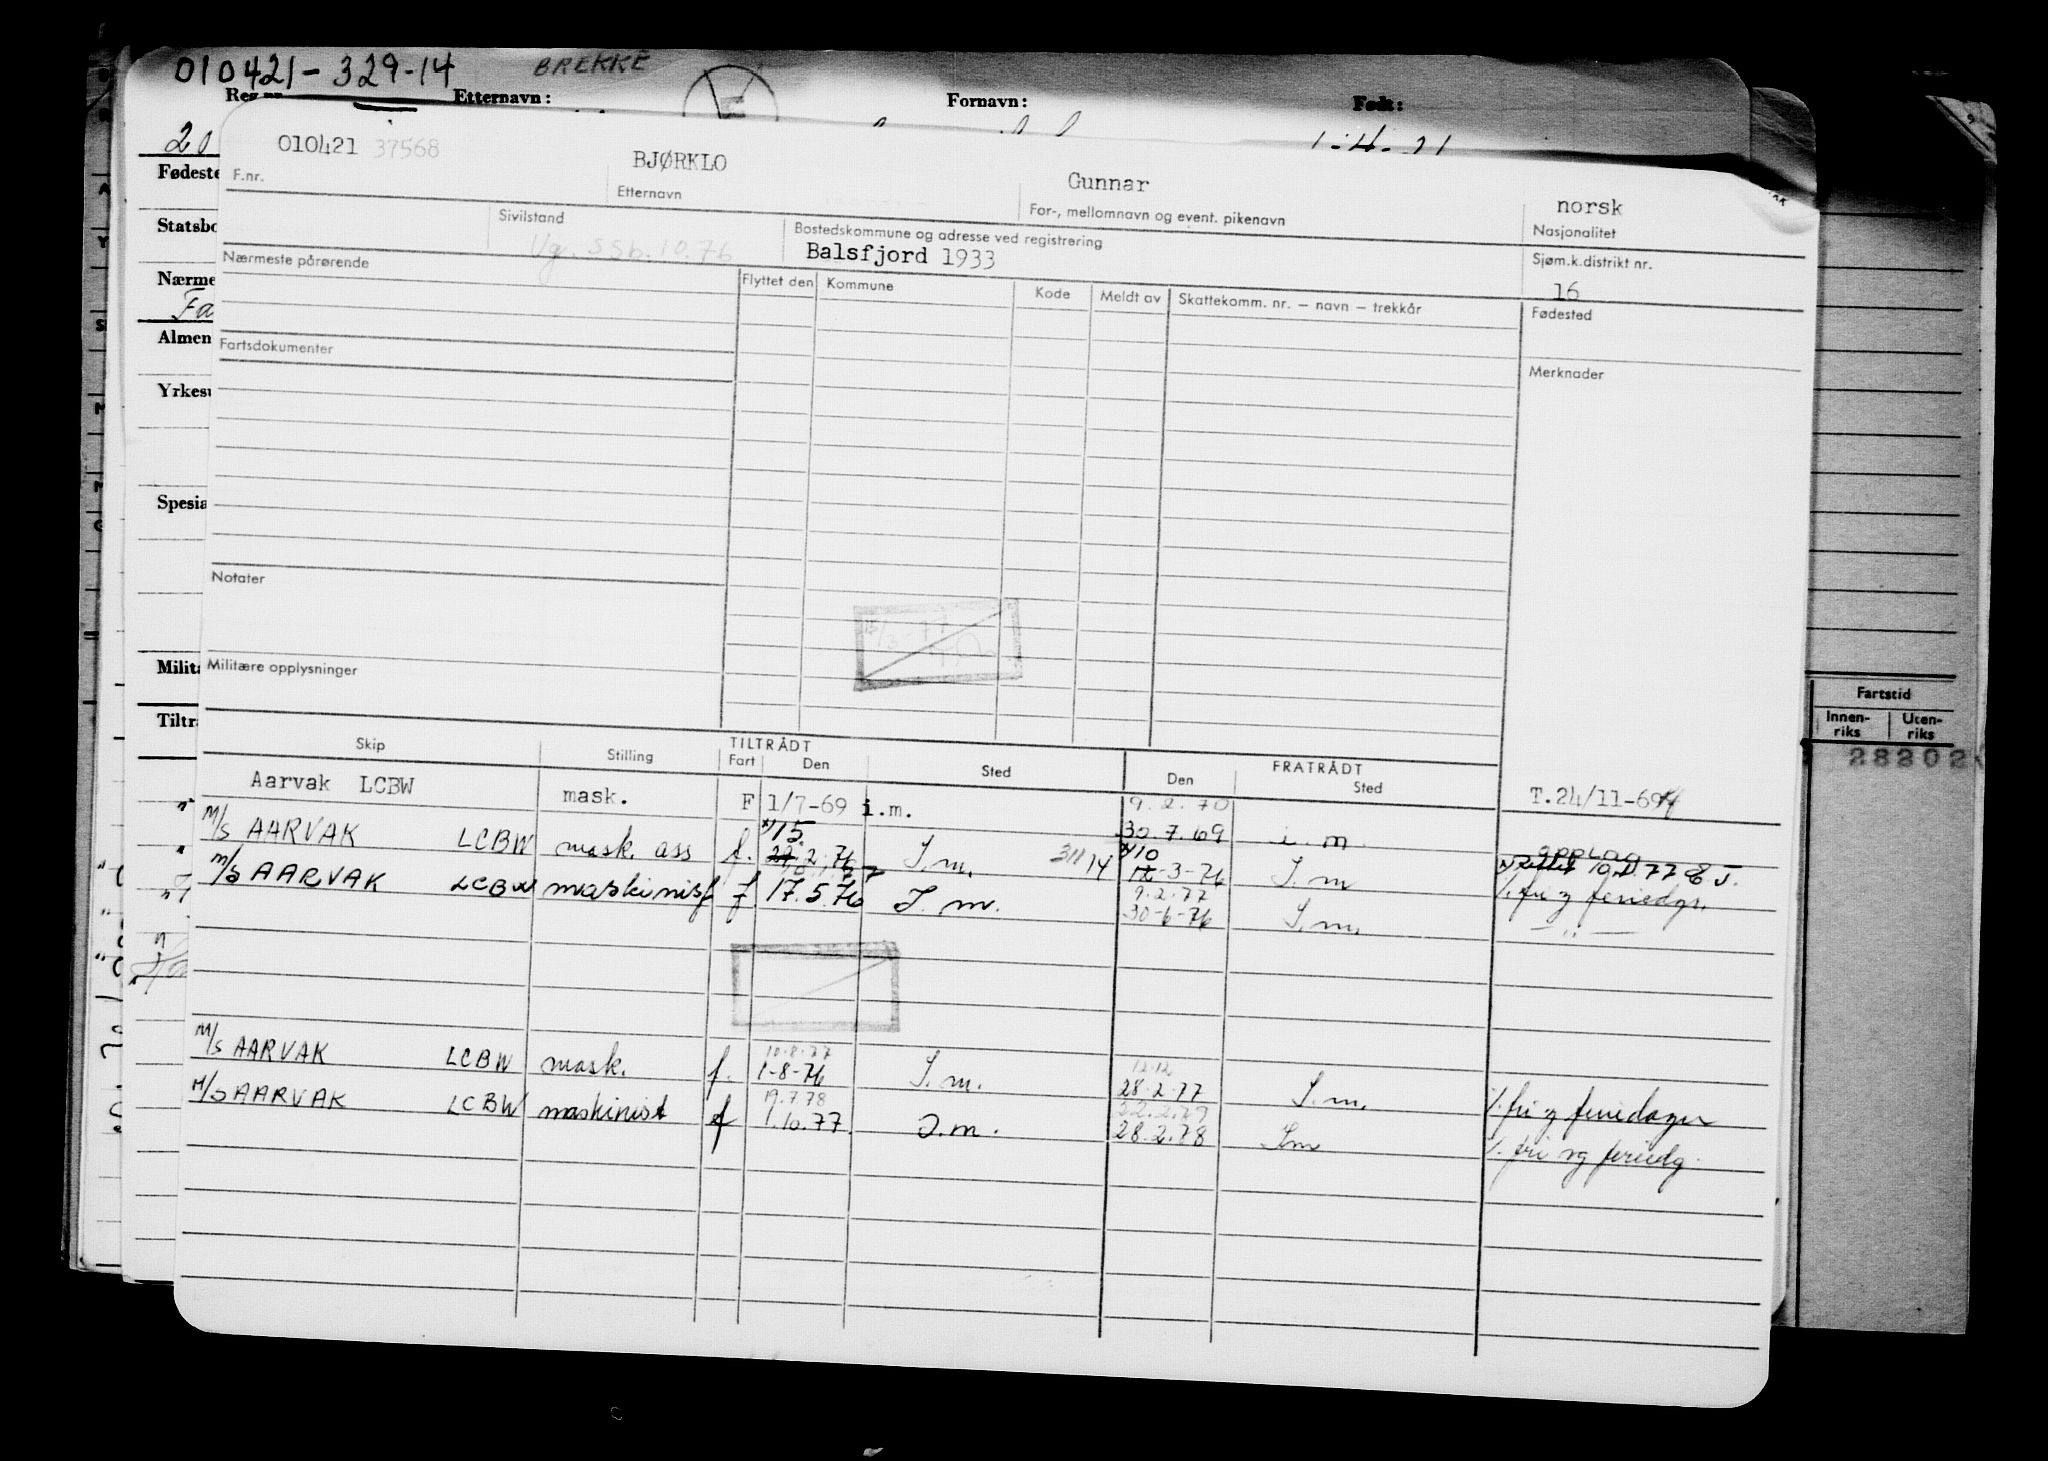 010421-329-14 BREKKE
Reg.nr. Etternavn: Fornavn: Født:
20
010421 37568 BJØRKLO Gunnar norsk
F.nr. Etternavn For-, mellomnavn og event. pikenavn Nasjonalitet
Fødeste
Statsbo
Sivilstand Bostedskommune og adresse ved registrering Sjøm.k.distrikt nr.
Vg. SSb. 10.76 Balsfjord 1933 16
Nærme
Fa
Nærmeste pårørende Flyttet den Kommune Kode Meldt av Skattekomm. nr. – navn – trekkår Fødested
Almen
Fartsdokumenter Merknader
Yrkesu
Spesia
Notater
Milita
Militære opplysninger
Tiltr
Fartstid
Innen-
riks
Uten-
riks
28202
Skip Stilling TILTRÅDT FRATRÅDT
Fart Den Sted Den Sted
Aarvak LCBW mask. F 1/7-69 i.m. 9.2.70 T.24/11-69
30.7.69 i.m.
M/S AARVAK LCBW mask. ass f. 15. 2.76 I.m. 311 14 10 -3-76 I.m 10.2.77
M/S AARVAK LCBW maskinist f 17.5.76 I.m. 9.2.77 /. fri og feriedgr.
30-6-76 I.m. — " —
10.8.77 12.12
M/S AARVAK LCBW mask. f. 1-8-76 I.m. 28.2.77 I.m. /. fri og feriedager
19.7.78
M/S AARVAK LCBW maskinist f 1.10.77 I.m. 28.2.78 Im /. fri og feriedg.